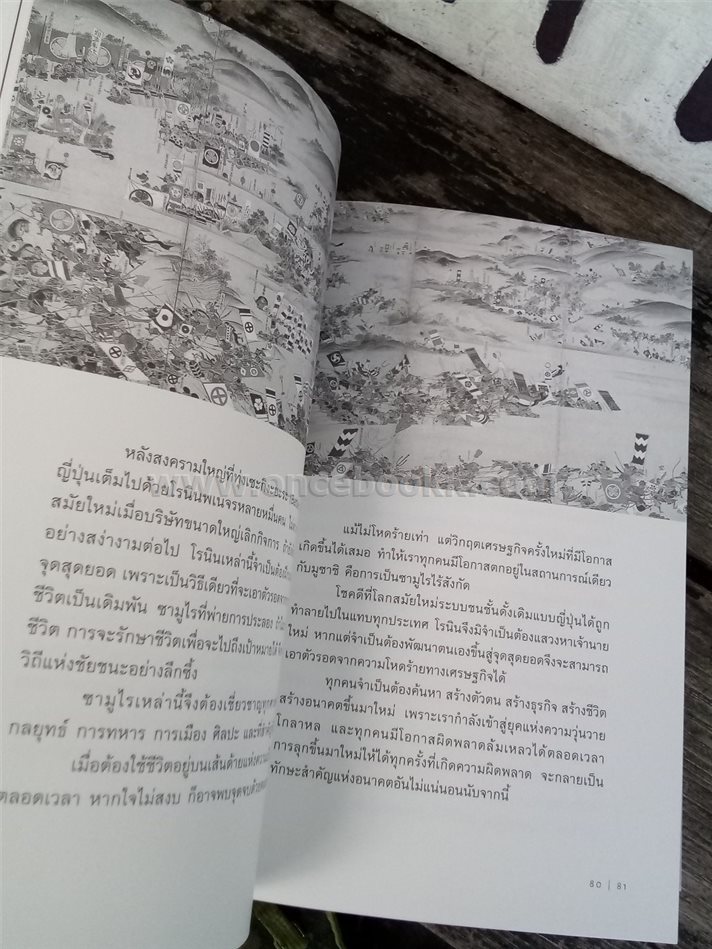 หลังสงครามใหญ่ที่ทุ่งเซะกิงะฮะระ
ญี่ปุ่นเต็มไปด้วยโรนินพเนจรหลายหมื่นคน
สมัยใหม่เมื่อบริษัทขนาดใหญ่เลิกกิจการ
อย่างสง่างามต่อไป โรนินเหล่านี้จำเป็นต้อง
จุดสุดยอด เพราะเป็นวิธีเดียวที่จะเอาตัวรอด
ชีวิตเป็นเดิมพัน ซามูไรที่พ่ายการประลอง
ชีวิต การจะรักษาชีวิตเพื่อจะไปถึงเป้าหมายได้
วิถีแห่งชัยชนะอย่างลึกซึ้ง
ซามูไรเหล่านี้จึงต้องเชี่ยวชาญ
กลยุทธ์ การทหาร การเมือง ศิลปะ และ
เมื่อต้องใช้ชีวิตอยู่บนเส้นด้ายแห่ง
ตลอดเวลา หากใจไม่สงบ ก็อาจพบจุดจบ
www.oncebookk.com
แม้ไม่โหดร้ายเท่า แต่วิกฤตเศรษฐกิจครั้งใหม่ที่มีโอกาส
เกิดขึ้นได้เสมอ ทำให้เราทุกคนมีโอกาสตกอยู่ในสถานการณ์เดียว
กับมูซาชิ คือการเป็นซามูไรไร้สังกัด
โชคดีที่โลกสมัยใหม่ระบบชนชั้นดั้งเดิมแบบญี่ปุ่นได้ถูก
ทำลายไปในแทบทุกประเทศ โรนินจึงมิจำเป็นต้องแสวงหาเจ้านาย
ใหม่ หากแต่จำเป็นต้องพัฒนาตนเองขึ้นสู่จุดสุดยอดจึงจะสามารถ
เอาตัวรอดจากความโหดร้ายทางเศรษฐกิจได้
ทุกคนจำเป็นต้องค้นหา สร้างตัวตน สร้างธุรกิจ สร้างชีวิต
สร้างอนาคตขึ้นมาใหม่ เพราะเรากำลังเข้าสู่ยุคแห่งความวุ่นวาย
โกลาหล และทุกคนมีโอกาสผิดพลาดล้มเหลวได้ตลอดเวลา
การลุกขึ้นมาใหม่ให้ได้ทุกครั้งที่เกิดความผิดพลาด จะกลายเป็น
ทักษะสำคัญแห่งอนาคตอันไม่แน่นอนนับจากนี้
80 | 81